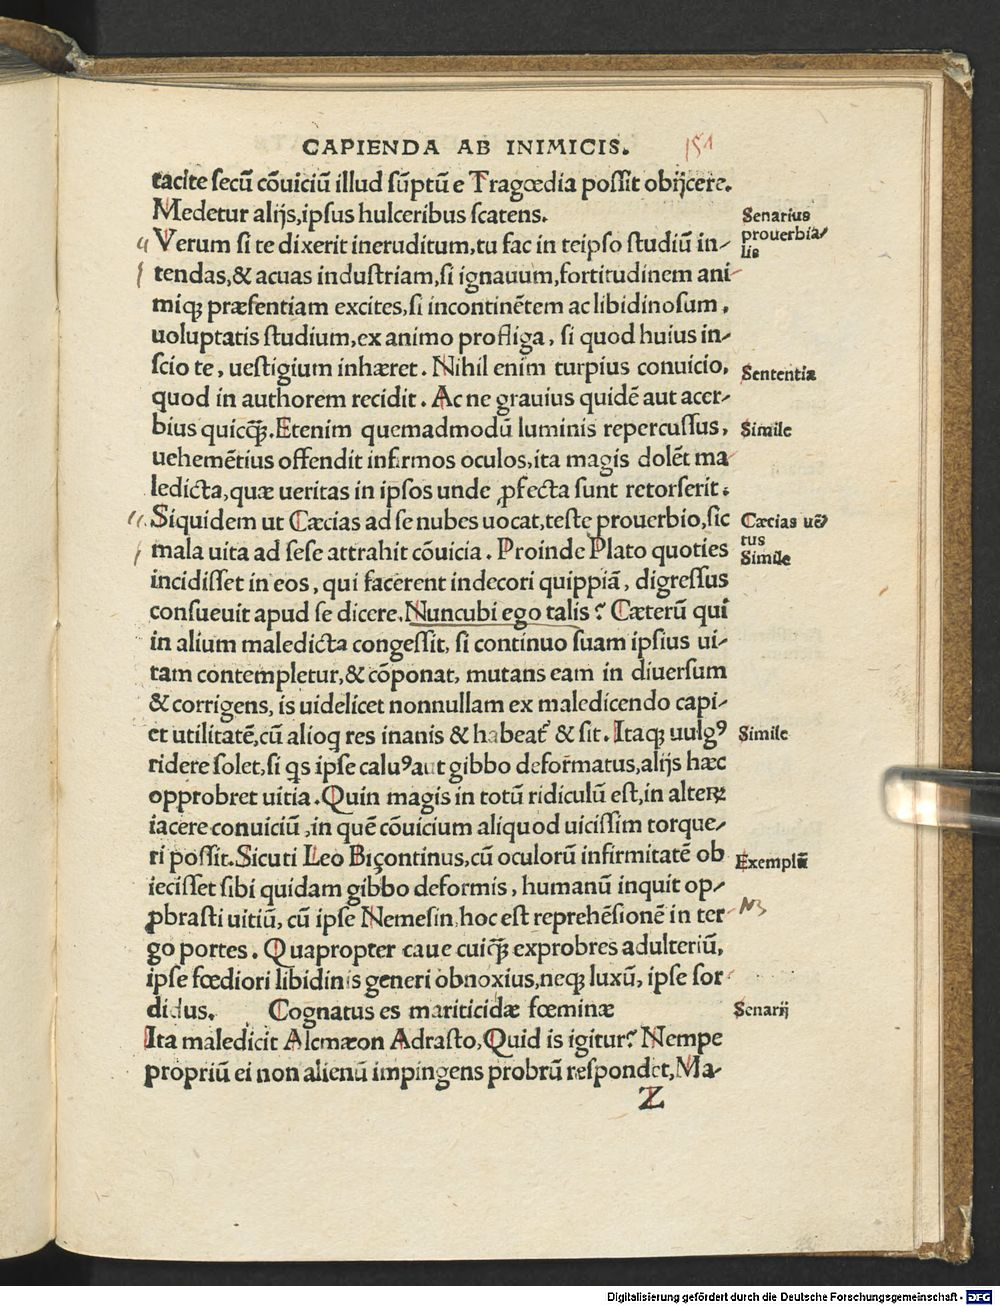 CAPIENDA AB INIMICIS.
151
tacite secū cōuiciū illud sūptū e Tragœdia possit obijcere.
Medetur alijs,ipsus hulceribus scatens.
Senarius
prouerbia/
lis
Verum si te dixerit ineruditum,tu fac in teipso studiū in/
tendas,& acuas industriam,si ignauum,fortitudinem ani
miqꝫ præsentiam excites,si incontinētem ac libidinosum,
uoluptatis studium,ex animo profliga, si quod huius in/
scio te, uestigium inhæret. Nihil enim turpius conuicio,
Sententia
quod in authorem recidit. Ac ne grauius quidē aut acer/
bius quicq̄ꝫ.Etenim quemadmodū luminis repercussus,
Simile
uehemētius offendit infirmos oculos,ita magis dolēt ma
ledicta,quæ ueritas in ipsos unde ꝓfecta sunt retorserit.
Siquidem ut Cæcias ad se nubes uocat,teste prouerbio,sic
Cæcias uē/
tus
mala uita ad sese attrahit cōuicia. Proinde Plato quoties
Simile
incidisset in eos, qui facerent indecori quippiā, digressus
consueuit apud se dicere.Nuncubi ego talis? Cæterū qui
in alium maledicta congessit, si continuo suam ipsius ui/
tam contempletur,& cōponat, mutans eam in diuersum
& corrigens, is uidelicet nonnullam ex maledicendo capi/
et utilitatē,cū alioq res inanis & habeat & sit. Itaqꝫ uulgꝰ
Simile
ridere solet,si qs ipse caluꝰaut gibbo deformatus,alijs hæc
opprobret uitia. Quin magis in totū ridiculū est,in alteꝝ
iacere conuiciū ,in quē cōuicium aliquod uicissim torque/
ri possit.Sicuti Leo Biçontinus,cū oculorū infirmitatē ob
Exemplū
iecisset sibi quidam gibbo deformis, humanū inquit op/
ꝓbrasti uitiū, cū ipse Nemesin,hoc est reprehēsionē in ter
go portes. Quapropter caue cuiq̄ꝫ exprobres adulteriū,
ipse fœdiori libidinis generi obnoxius,neqꝫ luxū, ipse sor
didus. Cognatus es mariticidæ fœminæ
Senarij
Ita maledicit Alcmæon Adrasto,Quid is igitur? Nempe
propriū ei non alienū impingens probrū respondet,Ma/
Z
Digitalisierung gefördert durch die Deutsche Forschungsgemeinschaft - DFG